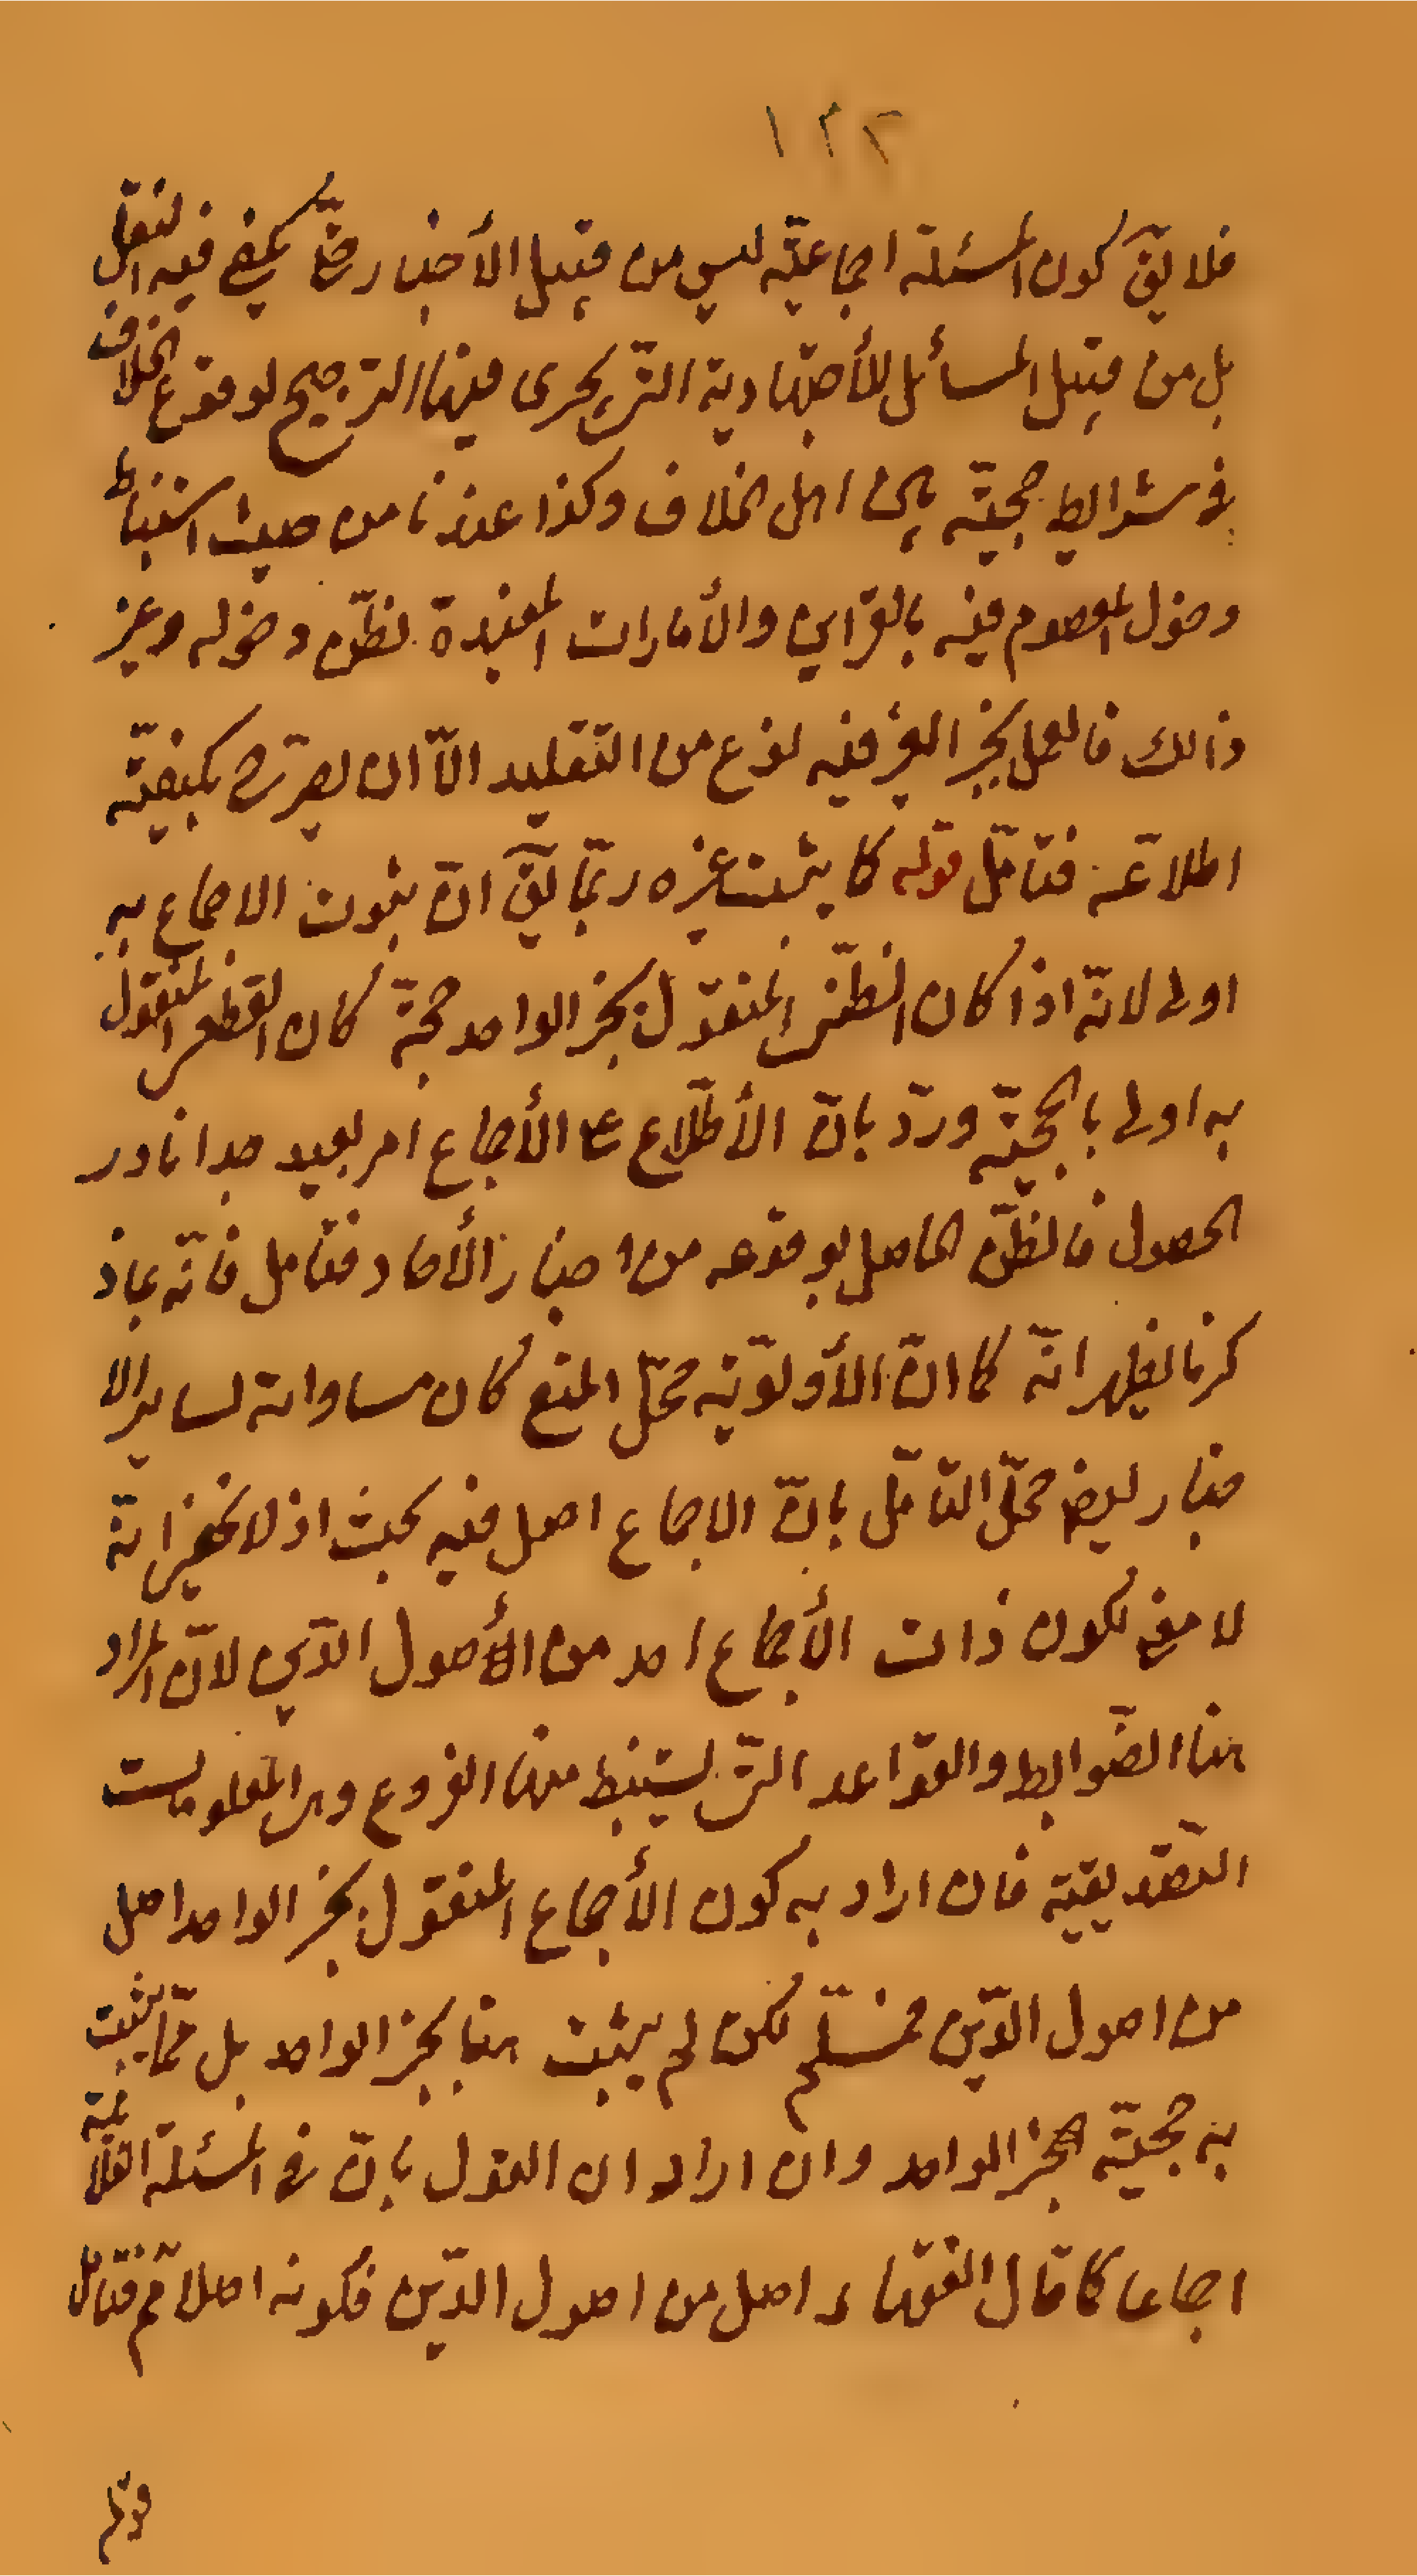 ١٢٢
فلا يقٓ كون المسئلة اجماعيّه ليس من قبيل الأخبار حتّى يكفى فيه النقل
بل من قبيل المسائل الأجتهادية التّى يجرى فيها الترجيح لوقوع الخلاف
فى شرايط حجيّته بين اهل الخلاف وكذا عندنا من حيث استنباط
دخول المعصوم فيه بالقراين والأمارات المفيدة لظنّ دخوله وغير
ذالك فالعمل بخبر الغير فيه نوع من التقليد الّا ان يصرّح بكيفيّة
اطلاعه فتامّل قوله كما يثبت غيره ربّما يقٓ انّ ثبوت الاجماع به
اولى لانّه اذا كان الظنّى المنقول بخبر الواحد حجّة كان القطعى المنقول
به اولى بالحجيّة وردّ بانّ الأطّلاع على الأجماع امر بعيد جدا نادر
الحصول فالظنّ الحاصل بوقوعه من اخبار الأحاد فتامل فانّه بماذ
كرنا يظهر انّه كما انّ الأولويّة محلّ المنع كان مساواته لساير الا
خبار ايض محلّ التامّل بانّ الاجماع اصل فيه بحث اذ لا يخفى انّه
لا معنى لكون ذات الأجماع احد من الأصول الدّين لانّ المراد
هنا الضّوابط والقوّاعد التّى يستنبط منها الفروع وهى المعلومات
التصّديقية فان اراد به كون الأجماع المنقول بخبر الواحد اصل
من اصول الدّين فمسلّم لكن لم يثبت هنا بخبر الواحد بل ممّا يثبت
به حجيّة الخبر الواحد وان اراد ان القول بانّ فى المسئلة الفلانية
اجماعا كما قال الفقهاء اصل من اصول الدّين فكونه اصلا مّ فتامّل
قولم